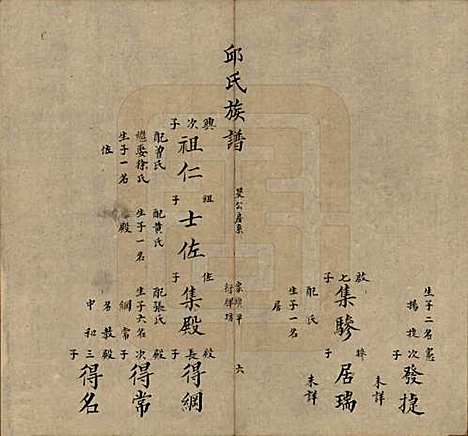 生子二名憲
揚 捷
次子
發捷
未詳
居瑞
未詳
啟七子
集驂
配 氏
生子一名
居
邱氏族譜
六
興次子
祖仁
配曾氏
繼娶徐氏
生子一名
佐
祖子
士佐
配黄氏
生子一名
殿
佐子
集殿
配張氏
生子六名
綱 常
名 毅
中 和
殿長子
得綱
殿次子
得常
殿三子
得名